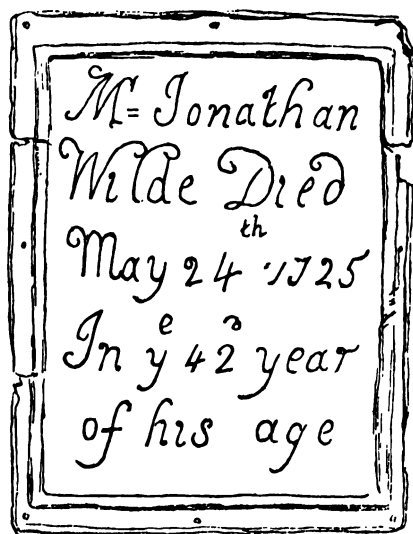 M= Jonathan
Wilde Died
May 24th 1725
In ye 42d year
of his age